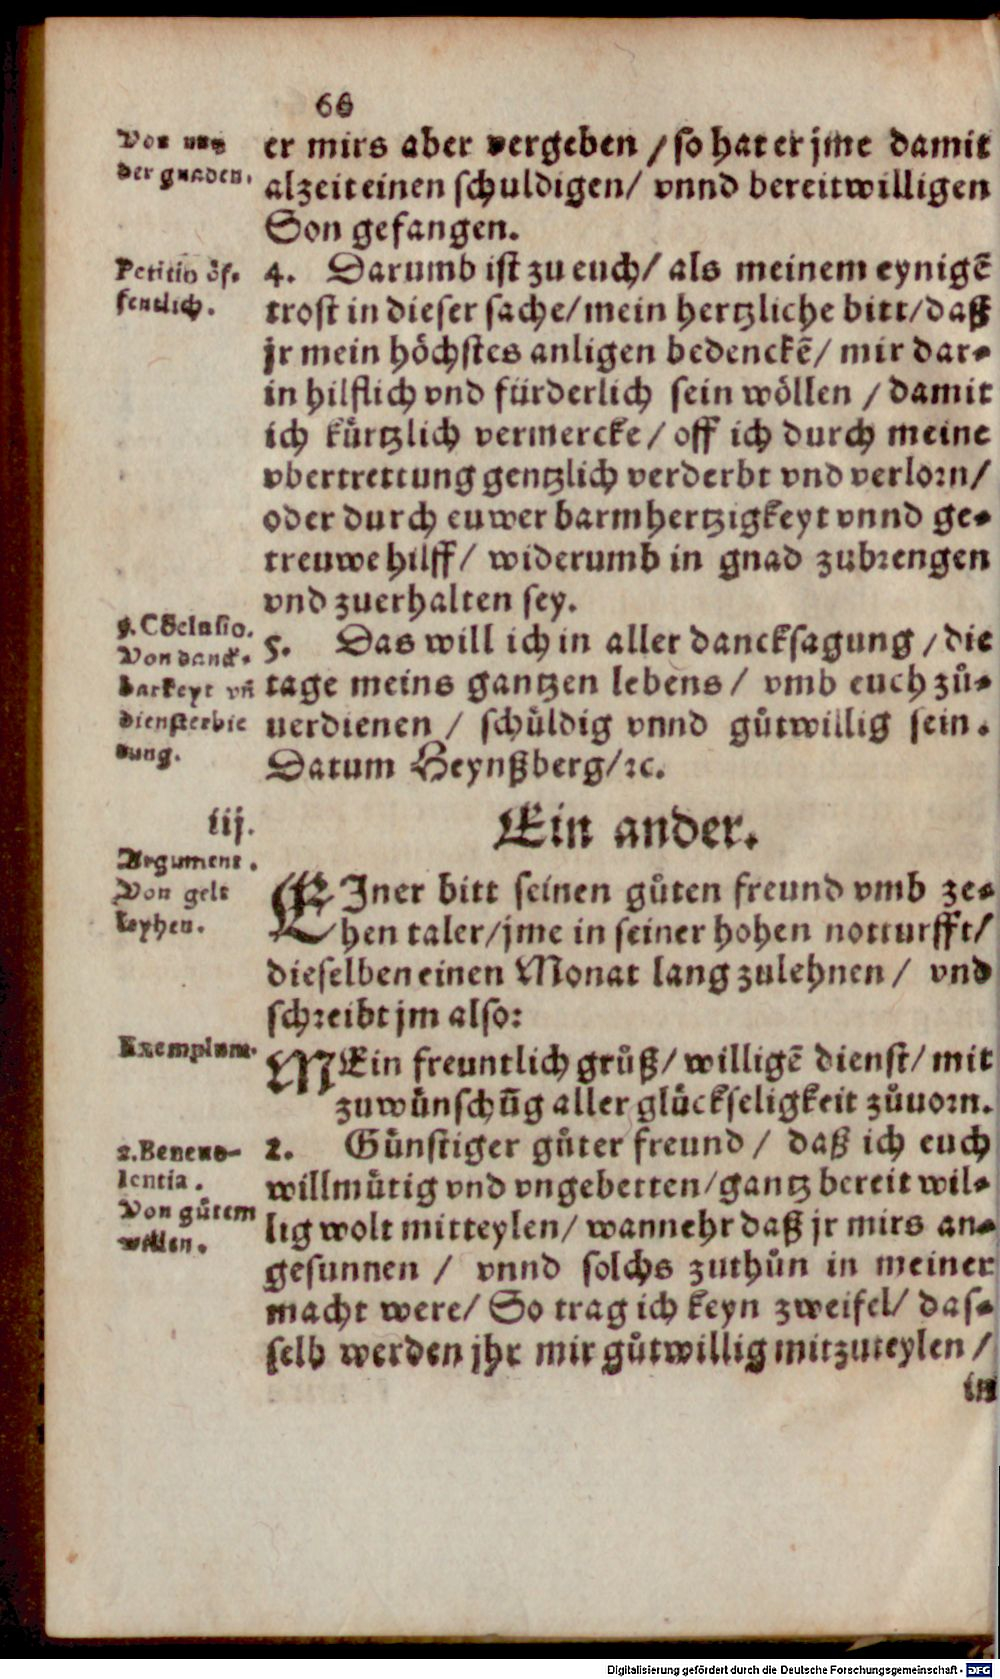 66
Von vng
der gnaden.
er mirs aber vergeben / so hat er jme damit
alzeit einen schuldigen / vnnd bereitwilligen
Son gefangen.
Petitio öf-
fentlich.
4. Darumb ist zu euch / als meinem eynigẽ
trost in dieser sache / mein hertzliche bitt / daß
jr mein höchstes anligen bedenckẽ / mir dar-
in hilflich vnd fürderlich sein wöllen / damit
ich kürtzlich vermercke / off ich durch meine
vbertrettung gentzlich verderbt vnd verlorn /
oder durch euwer barmhertzigkeyt vnnd ge-
treuwe hilff / widerumb in gnad zubrengen
vnd zuerhalten sey.
5. Cõclusio.
Von danck-
barkeyt vñ
diensterbie
tung.
5. Das will ich in aller dancksagung / die
tage meins gantzen lebens / vmb euch zů-
uerdienen / schüldig vnnd gůtwillig sein.
Datum Heynßberg / ꝛc.
iij.
Ein ander.
Argument.
Von gelt
leyhen.
EIner bitt seinen gůten freund vmb ze-
hen taler / jme in seiner hohen notturfft /
dieselben einen Monat lang zulehnen / vnd
schreibt jm also:
Exemplum.
MEin freuntlich grůß / willigẽ dienst / mit
zuwünschũg aller glückseligkeit zůuorn.
2. Beneuo-
lentia.
Von gůtem
willen.
2. Günstiger gůter freund / daß ich euch
willmütig vnd vngebetten / gantz bereit wil-
lig wolt mitteylen / wannehr daß jr mirs an-
gesunnen / vnnd solchs zuthůn in meiner
macht were / So trag ich keyn zweifel / das-
selb werden jhr mir gůtwillig mitzuteylen /
in
Digitalisierung gefördert durch die Deutsche Forschungsgemeinschaft - DFG